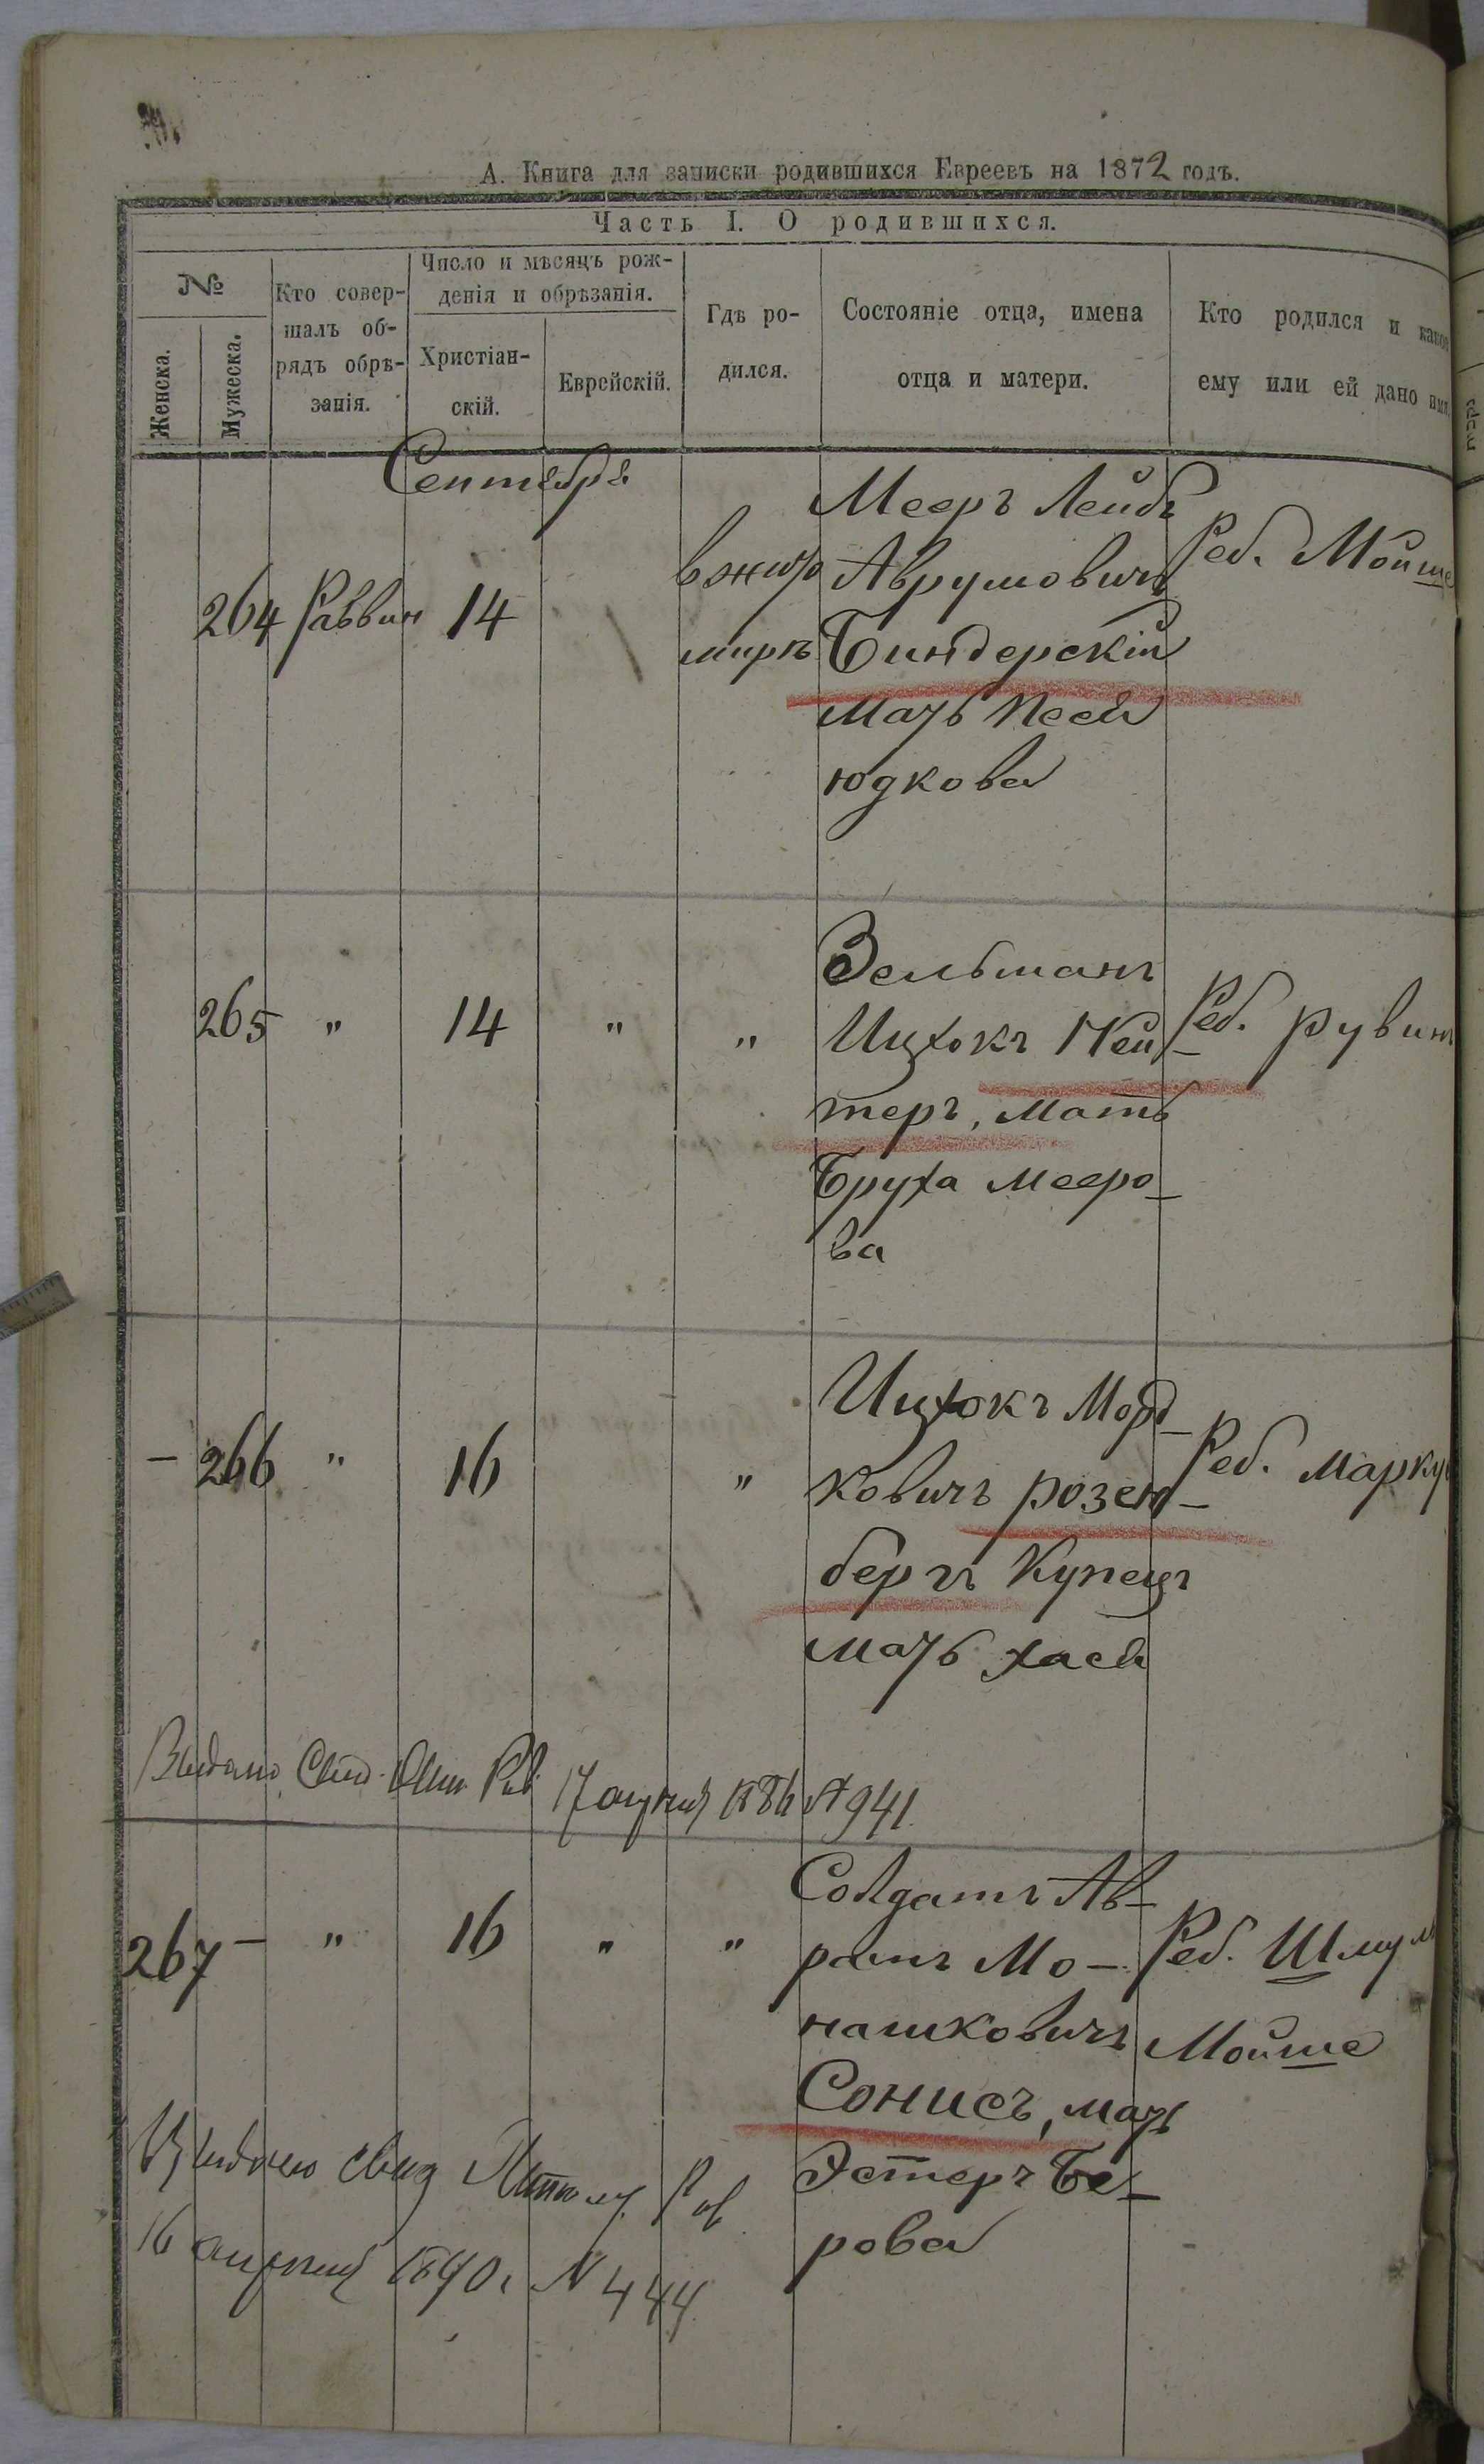 А. Книга для записки родившихся Евреевъ на 1872 годъ.
Часть I. О родившихся.
№
Женска.
Мужеска.
Кто совер-
шалъ об-
рядъ обрѣ-
занія.
Число и мѣсяцъ рож-
денія и обрѣзанія.
Христіан-
скій.
Еврейскій.
Гдѣ ро-
дился.
Состояніе отца, имена
отца и матери.
Кто родился и какое
ему или ей дано имя.
Сентябрь
264 Раввин 14
в жито
мирѣ
Мееръ Лейбъ
Аврумовичъ
Биндерскій
мать Песя
юдкова
Реб. Мойше
265 " 14 " "
Зельманъ
Ицхокъ Кей-
теръ, мать
Бруха Меєро-
ва
Реб. Рувинъ
- 266 " 16 "
Ицхокъ Морд-
ковичъ Розен-
бергъ Купецъ
мать Хася
Реб. Марку
Выдано Свид. Рав. 17 1886 № 941.
267 - " 16 " "
Солдатъ Ав-
рамъ Мо-
нашковичъ
Сонисъ, мать
Эстеръ Бе-
рова
Реб. Шмуль
Мойше
Выдано свид Рав
16 апреля 1890 г. № 444